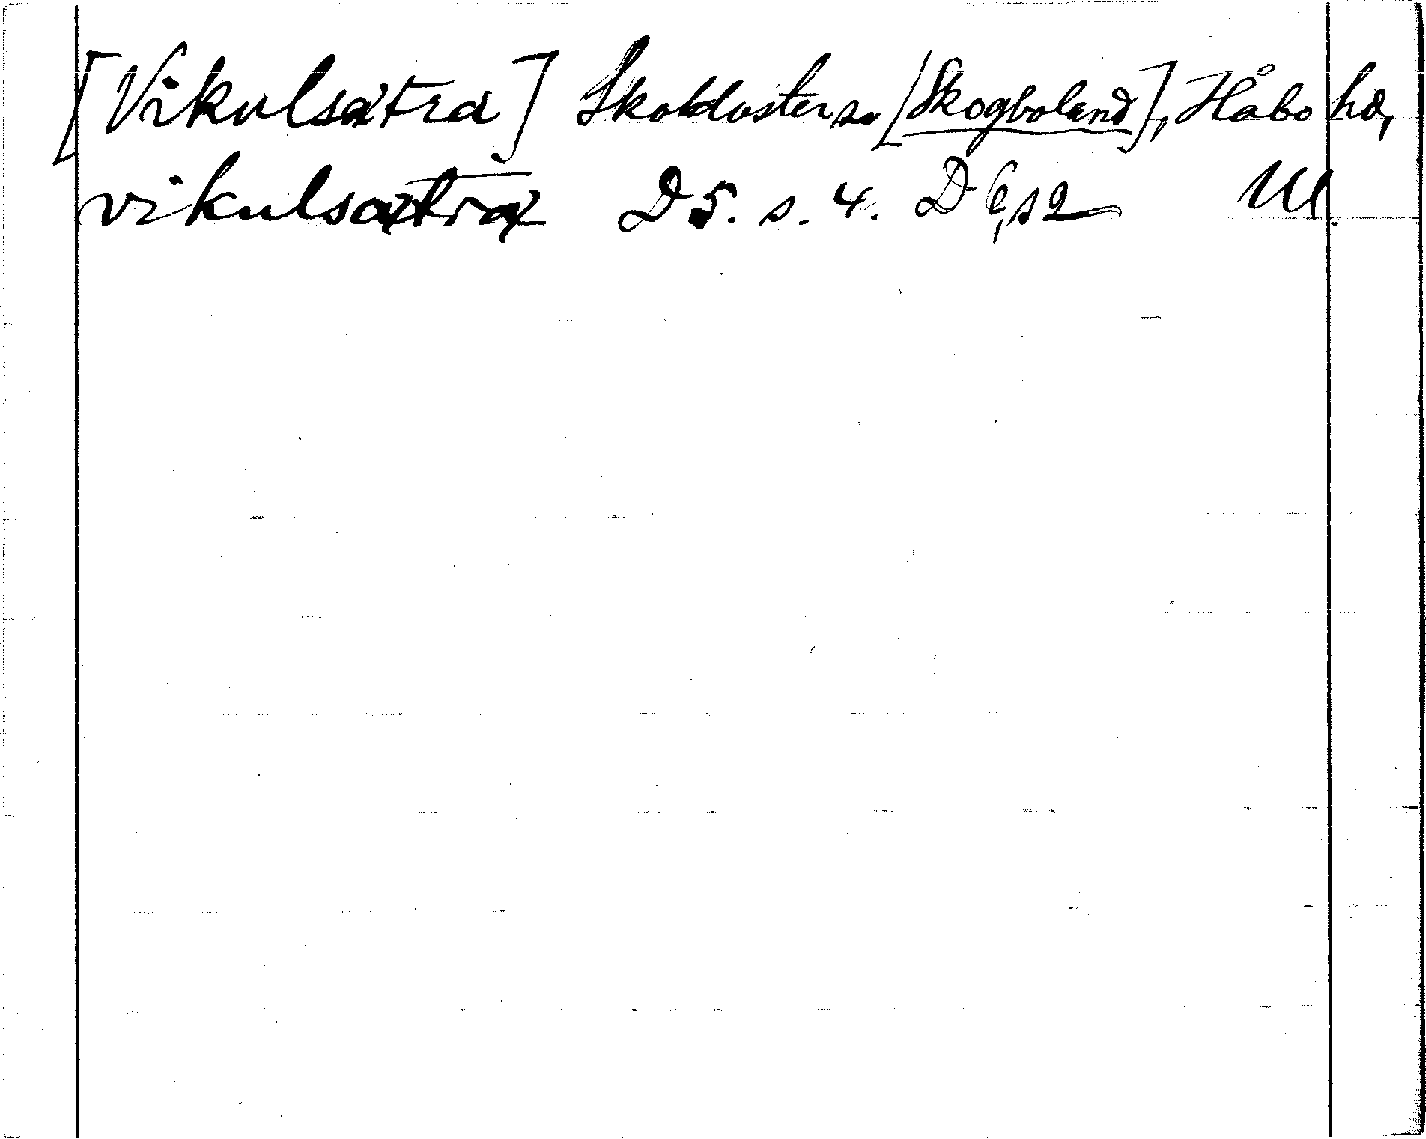 [Vikulsatra] Skokloster sn [Skogboland], Håbo hd,
vikulsatra D 5. s. 4. D 6, s 2 Ul.